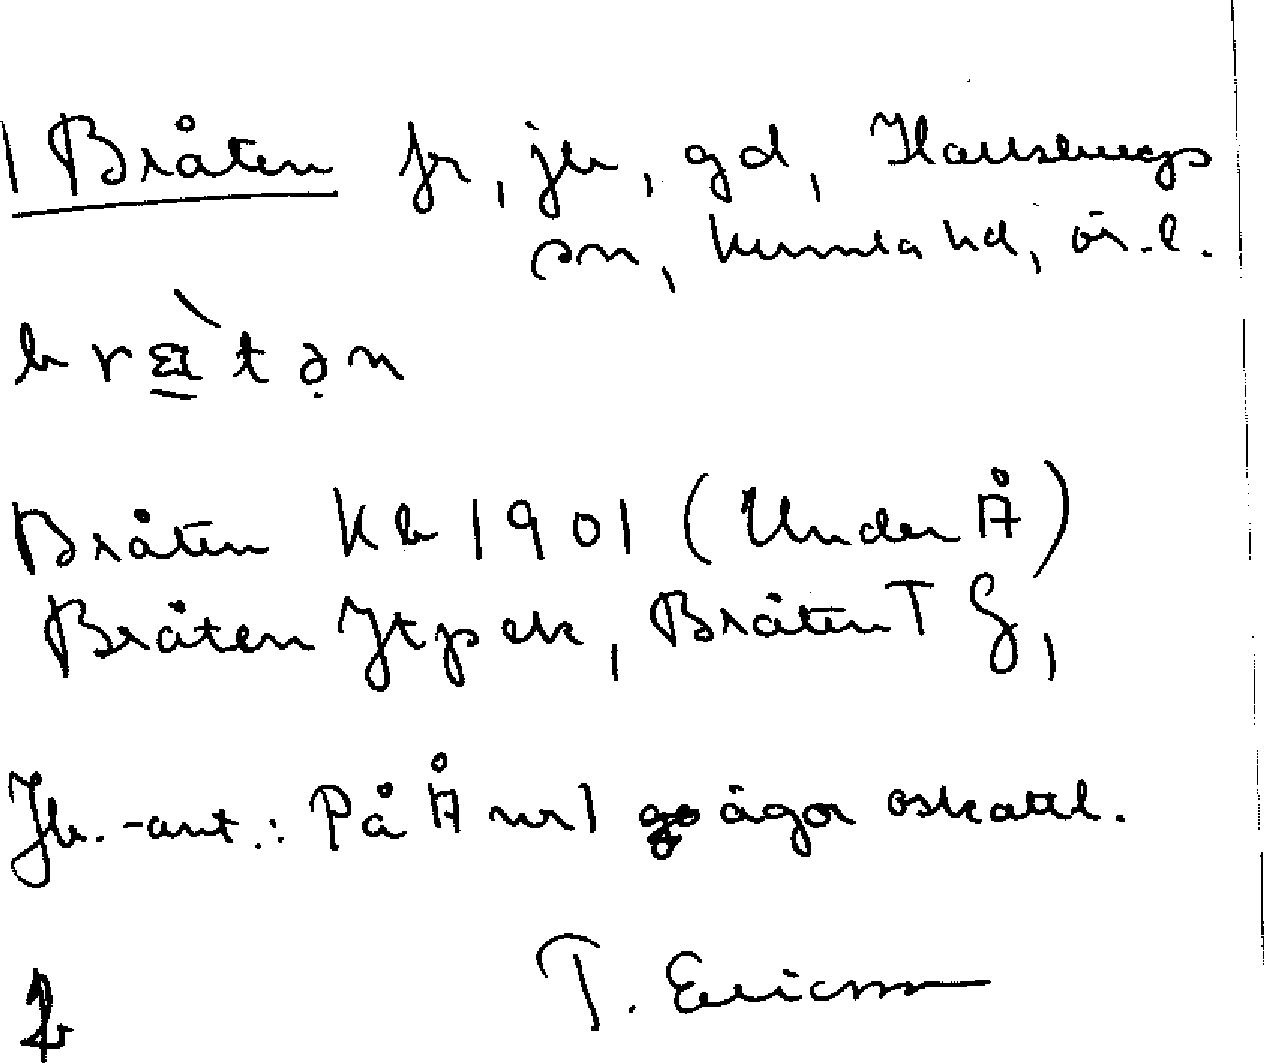 1 Bråten fr, jb, gd, Hallsbergs
sn, Kumla hd, ör. l.
Bråten Kb 1901 (Under Å)
Bråten Jtpek, Bråten T G,
Jb.-ant.: På Å nr 1 ägor oskattl.
T. Ericsson